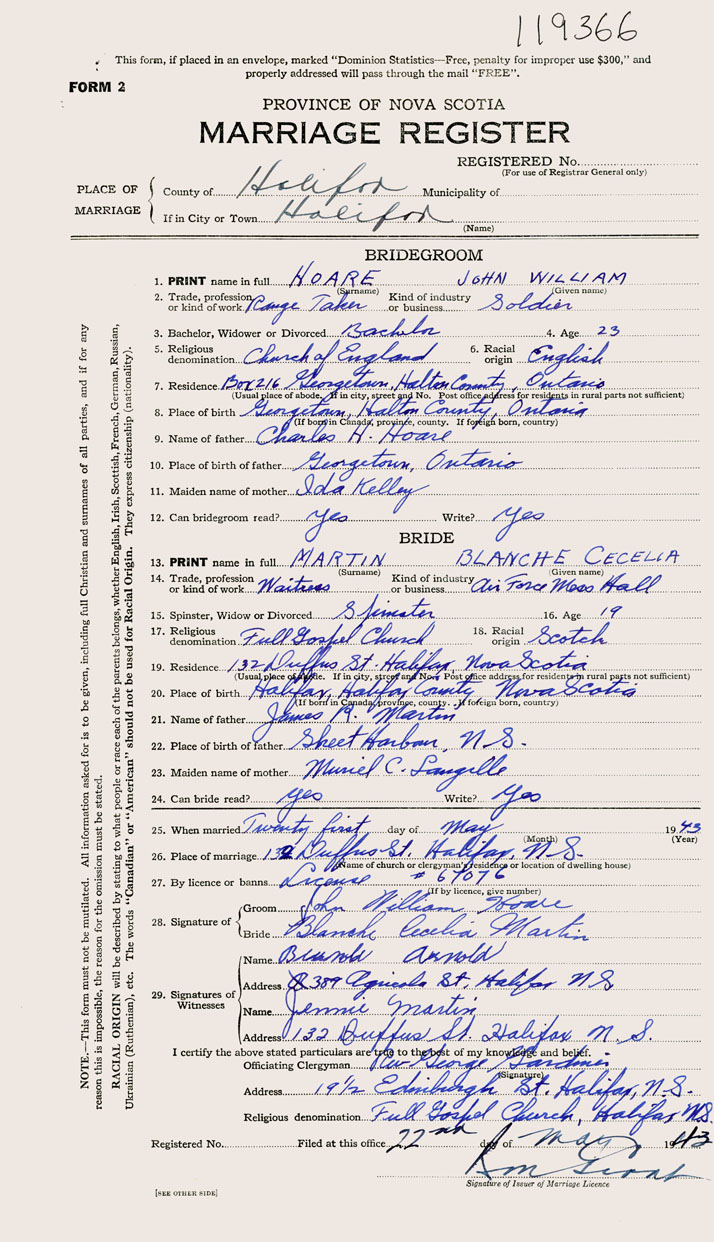 119366
This form, if placed in an envelope, marked "Dominion Statistics—Free, penalty for improper use $300," and
properly addressed will pass through the mail "FREE".
FORM 2
PROVINCE OF NOVA SCOTIA
MARRIAGE REGISTER
REGISTERED No.
(For use of Registrar General only)
PLACE OF MARRIAGE
County of Halifax Municipality of
If in City or Town Halifax
(Name)
BRIDEGROOM
1. PRINT name in full HOARE JOHN WILLIAM
(Surname) (Given name)
2. Trade, profession or kind of work Range Taker Kind of industry or business Soldier
3. Bachelor, Widower or Divorced Bachelor 4. Age 23
5. Religious denomination Church of England 6. Racial origin English
7. Residence Box 216 Georgetown, Halton County, Ontario
(Usual place of abode. If in city, street and No. Post office address for residents in rural parts not sufficient)
8. Place of birth Georgetown, Halton County, Ontario
(If born in Canada, province, county. If foreign born, country)
9. Name of father Charles H. Hoare
10. Place of birth of father Georgetown, Ontario
11. Maiden name of mother Ida Kelley
12. Can bridegroom read? Yes Write? Yes
BRIDE
13. PRINT name in full MARTIN BLANCHE CECELIA
(Surname) (Given name)
14. Trade, profession or kind of work Waitress Kind of industry or business Air Force Mess Hall
15. Spinster, Widow or Divorced Spinster 16. Age 19
17. Religious denomination Full Gospel Church 18. Racial origin Scotch
19. Residence 132 Duffus St. Halifax, Nova Scotia
(Usual place of abode. If in city, street and No. Post office address for residents in rural parts not sufficient)
20. Place of birth Halifax, Halifax County Nova Scotia
(If born in Canada, province, county. If foreign born, country)
21. Name of father James R. Martin
22. Place of birth of father Sheet Harbour, N.S.
23. Maiden name of mother Muriel C. Langille
24. Can bride read? Yes Write? Yes
25. When married Twenty first day of May 1943
(Month) (Year)
26. Place of marriage 132 Duffus St. Halifax, N.S.
(Name of church or clergyman's residence or location of dwelling house)
27. By licence or banns License # 67076
(If by licence, give number)
28. Signature of
Groom John William Hoare
Bride Blanche Cecelia Martin
29. Signatures of Witnesses
Name Arnold
Address 389 Agricola St. Halifax N S
Name Jennie Martin
Address 132 Duffus St. Halifax N. S.
I certify the above stated particulars are true to the best of my knowledge and belief.
Officiating Clergyman Rev George Gardner
(Signature)
Address 19½ Edinburgh St. Halifax, N.S.
Religious denomination Full Gospel Church, Halifax N.S.
Registered No. Filed at this office 22nd day of May 1943
Signature of Issuer of Marriage Licence
[SEE OTHER SIDE]
NOTE.—This form must not be mutilated. All information asked for is to be given, including full Christian and surnames of all parties, and if for any
reason this is impossible, the reason for the omission must be stated.
RACIAL ORIGIN will be described by stating to what people or race each of the parents belongs, whether English, Irish, Scottish, French, German, Russian,
Ukrainian (Ruthenian), etc. The words "Canadian" or "American" should not be used for Racial Origin. They express citizenship (nationality).